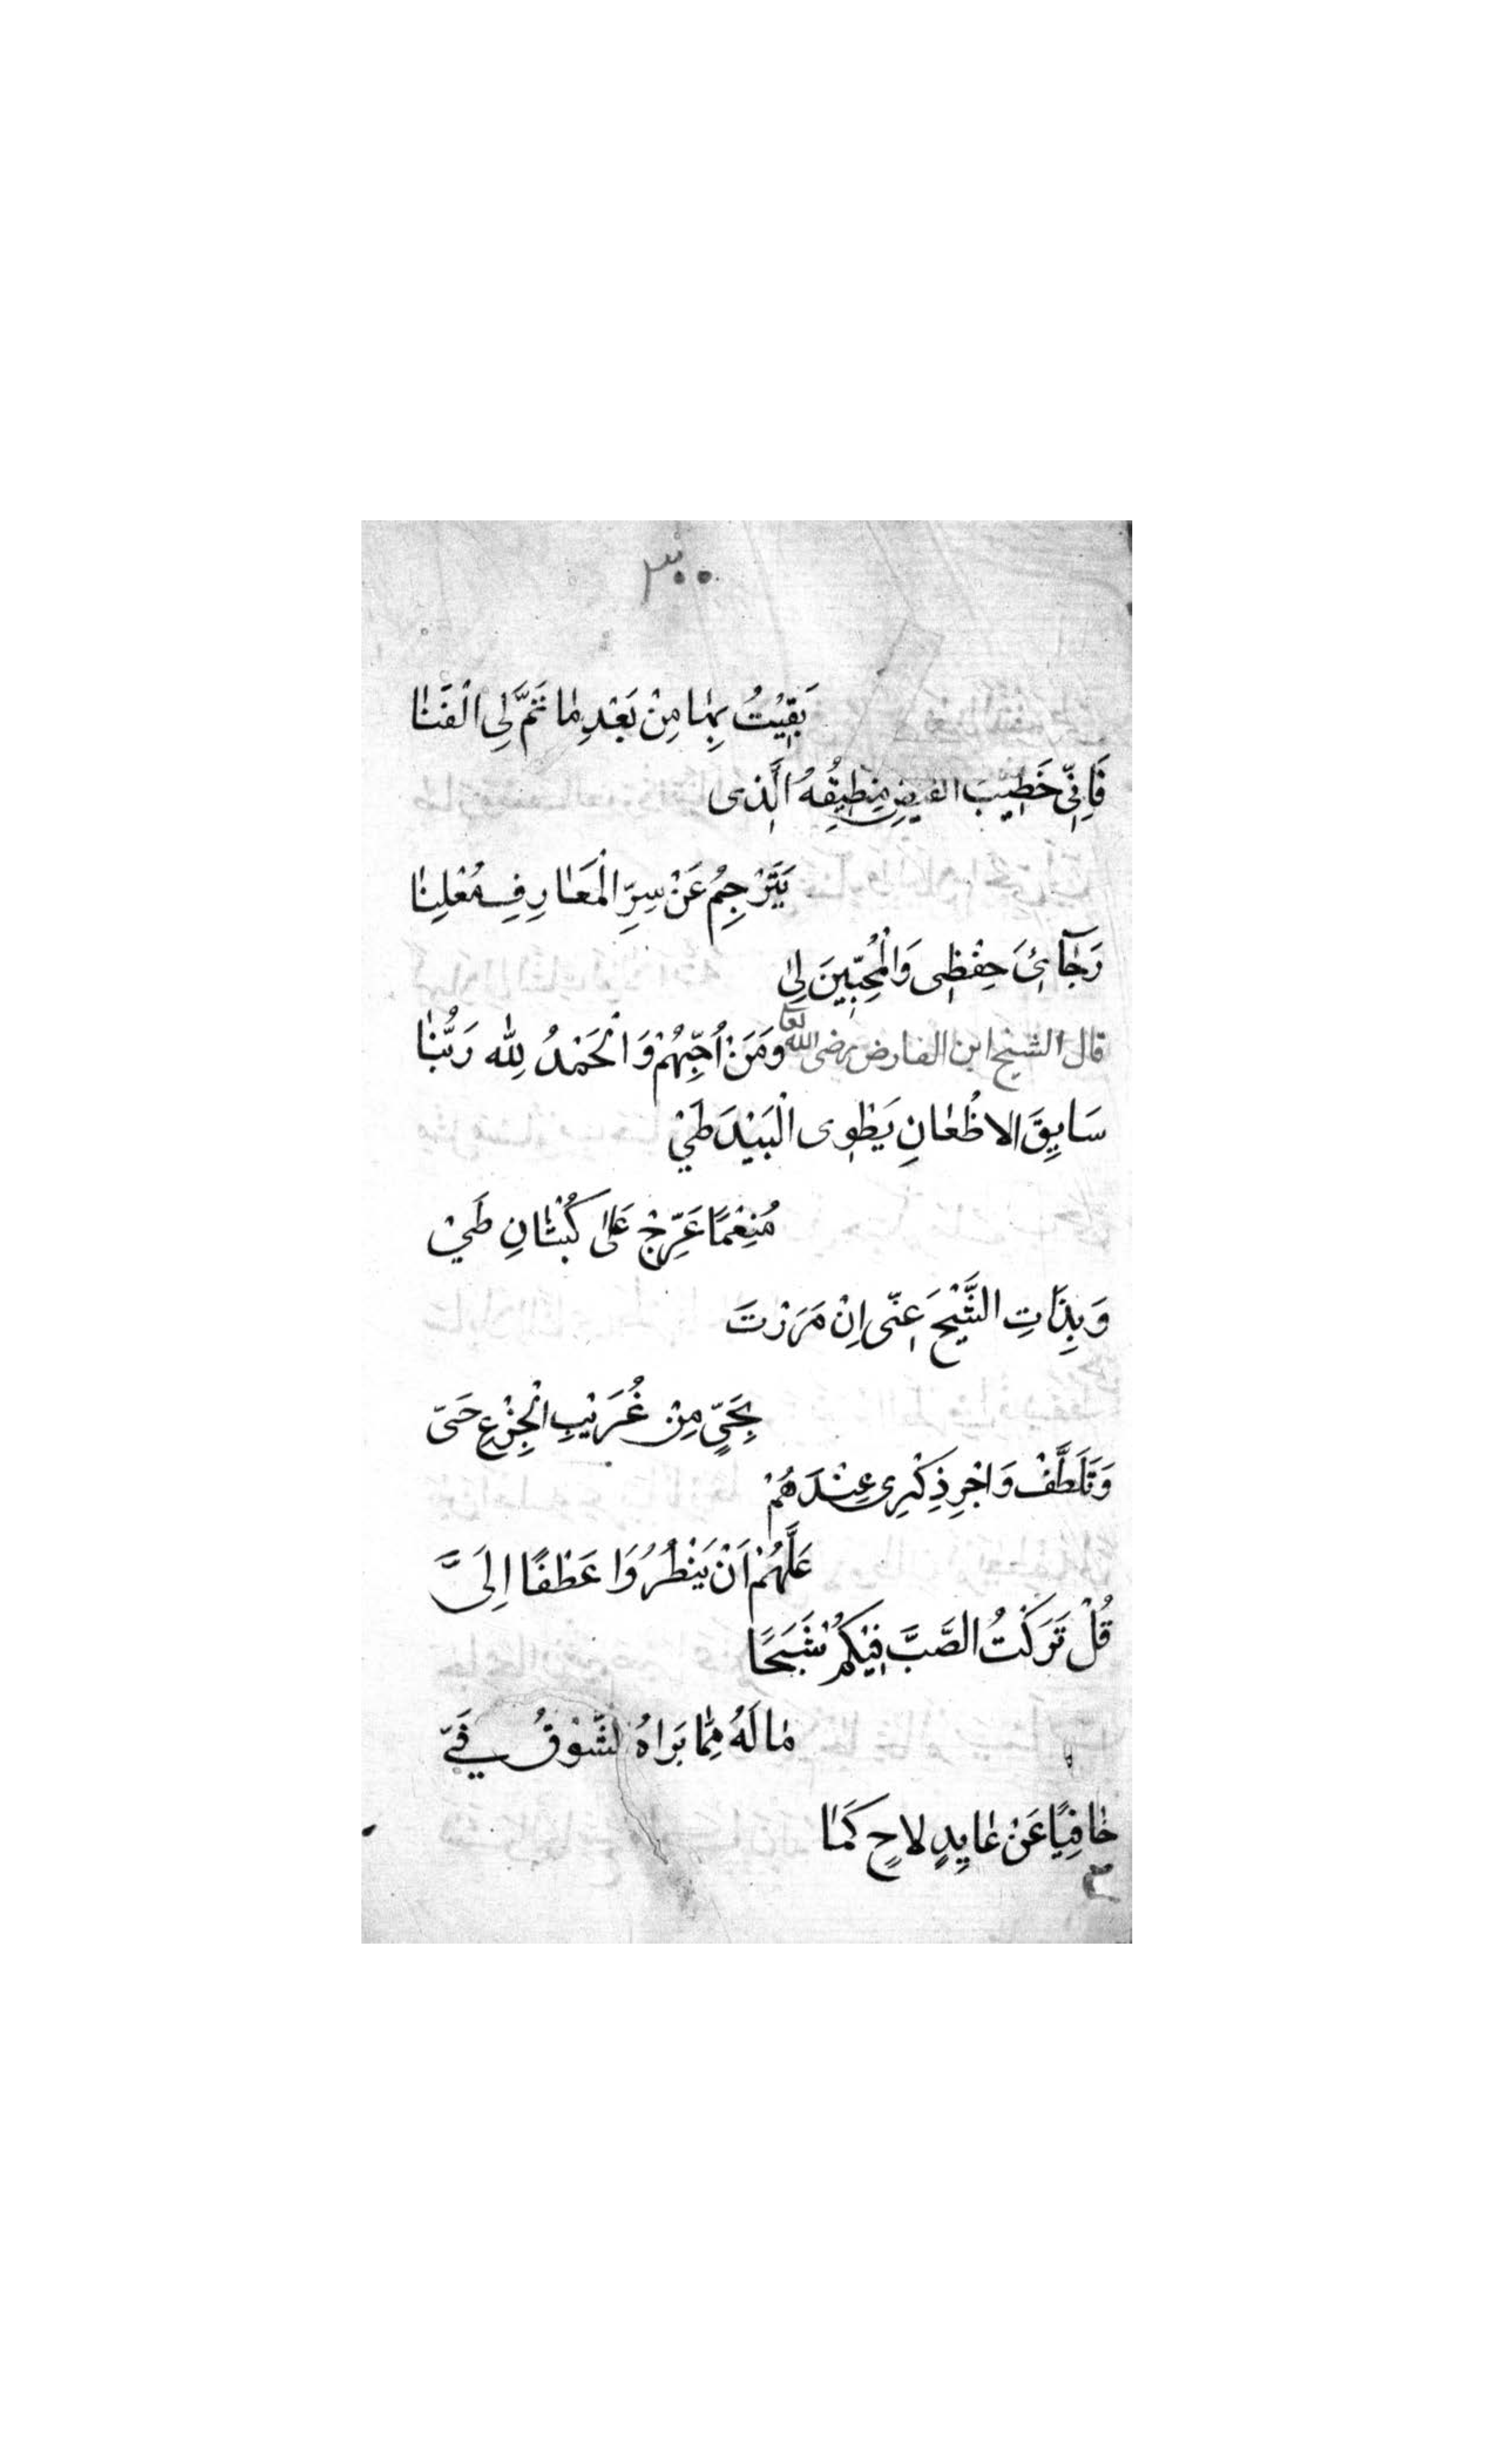 بَقِيْتُ بِهَا مِنْ بَعْدِ مَا تَمَّ لِى الْفَنَا
فَاِنِّى خَطِيْبَ الفيضِ مِنطيقُهُ الَّذى
يُتَرْجِمُ عَنْ سِرِّ الْمَعَارِفِ مُعْلِنَا
رَجَآئِىَ حِفْظِى وَالْمُحِبِّينَ لِى
قال الشيخ ابن الفارض رضى الله تعا وَمَنْ اُحِبُّهُمْ وَالْحَمْدُ لِلّٰه رَبُّنَا
سَايِقَ الاظْعَانِ يَطْوِى الْبَيْدَ طَيْ
مُنِعْمًا عَرِّجْ عَلَى كُثْبَانِ طَيْ
وَبِذَاتِ الشَّيْحِ عَنِّى اِنْ مَرَرْتَ
بِحَيٍّ مِنْ عُرَيْبِ الْجِزْعِ حَىّ
وَتَلَطَّفْ وَاجْرِ ذِكْرِى عِنْدَهُمْ
عَلَّهُمْ اَنْ يَنْظُرُوَا عَطْفًا اِلَىَّ
قُلْ تَرَكْتُ الصَّبَّ فِيْكُمْ شَبَحًا
مَا لَهُ مِمَّا بَرَاهُ الشَّوْقُ فَىّ
خَافِيًا عَنْ عَايِدٍ لاحِ كَمَا